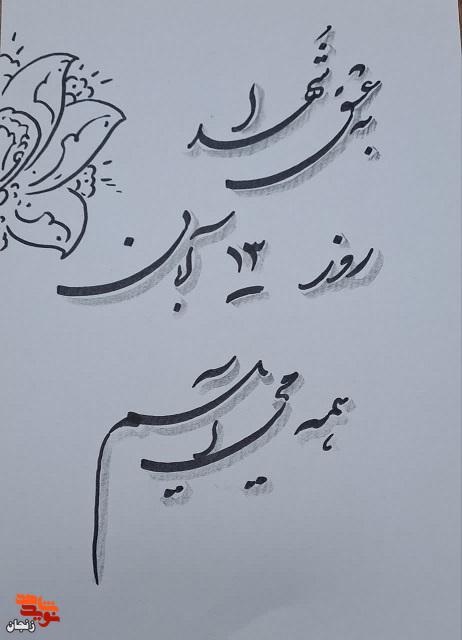 به عشق شهدا
روز ۱۳ آبان
همه می آییم
نوید شاهد
زنجان